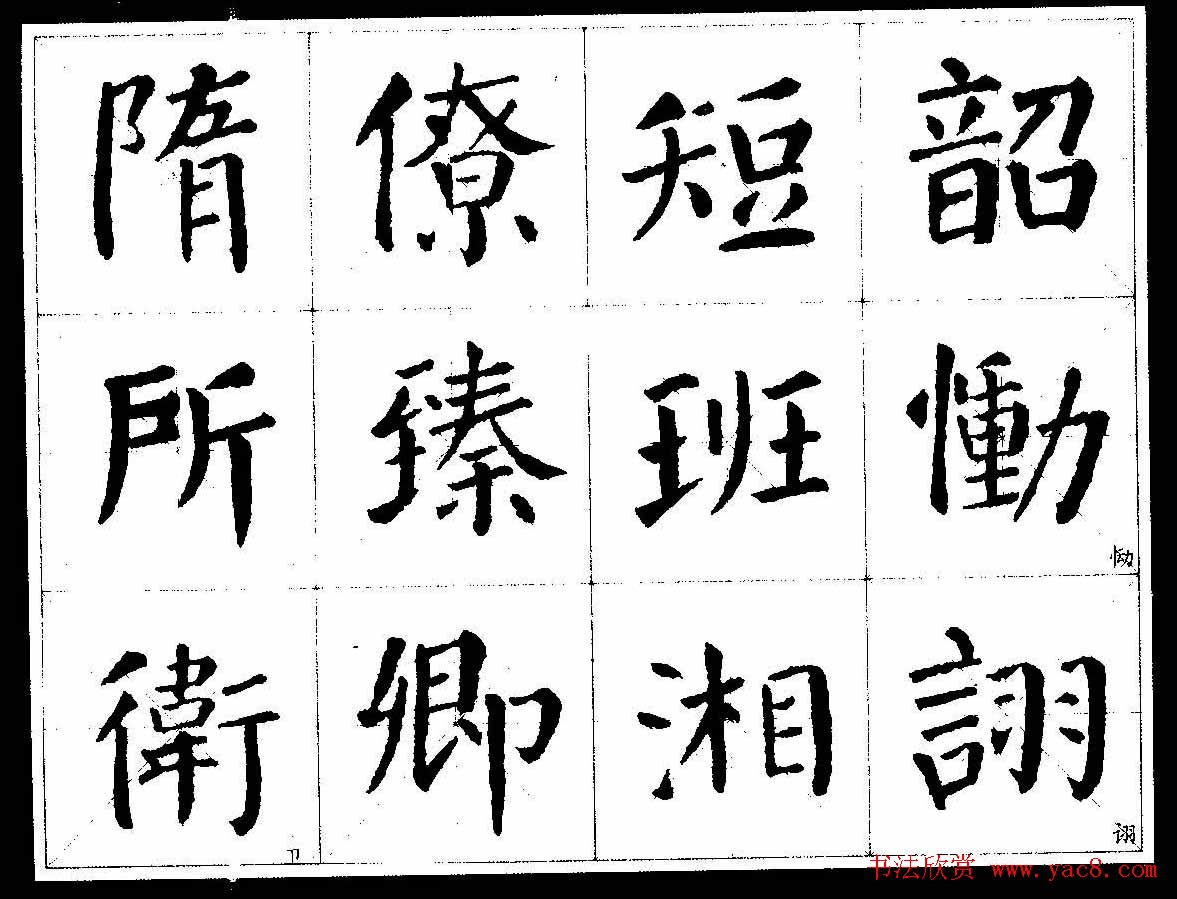 隋 僚 短 韶
所 臻 班 慟
恸
衛 卿 湘 詡
卫
诩
书法欣赏 www.yac8.com